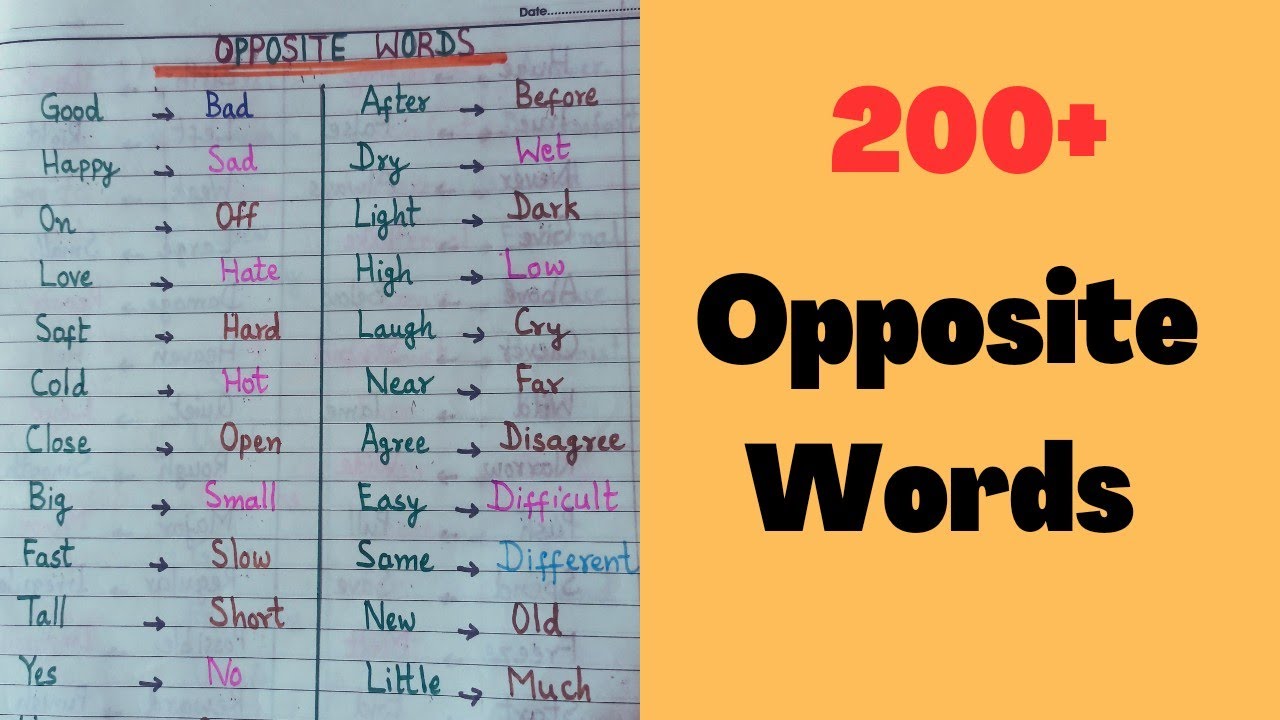 Date....................
OPPOSITE WORDS
Good → Bad
Happy → Sad
On → Off
Love → Hate
Soft → Hard
Cold → Hot
Close → Open
Big → Small
Fast → Slow
Tall → Short
Yes → No
After → Before
Dry → Wet
Light → Dark
High → Low
Laugh → Cry
Near → Far
Agree → Disagree
Easy → Difficult
Same → Different
New → Old
Little → Much
200+
Opposite
Words